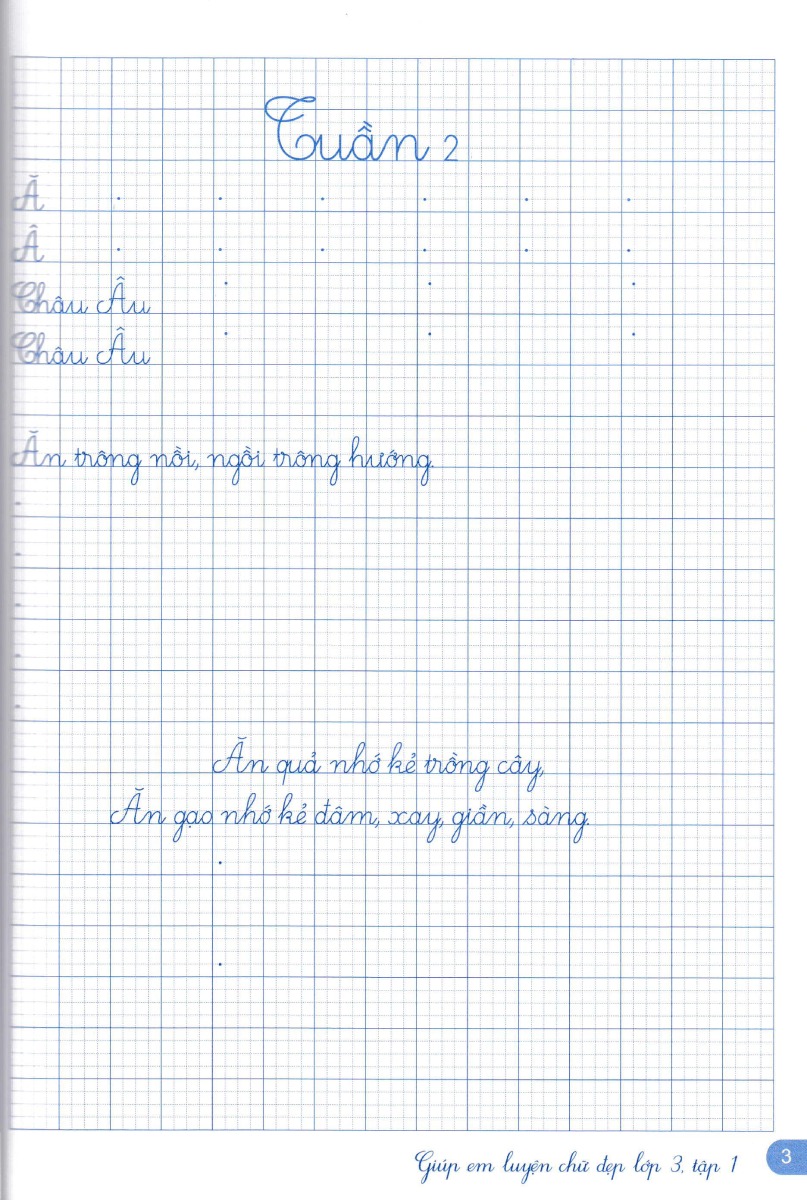 Tuần 2
Ă
Â
Châu Âu
Châu Âu
Ăn trông nồi, ngồi trông hướng.
Ăn quả nhớ kẻ trồng cây,
Ăn gạo nhớ kẻ đâm, xay, giần, sàng.
Giúp em luyện chữ đẹp lớp 3, tập 1
3